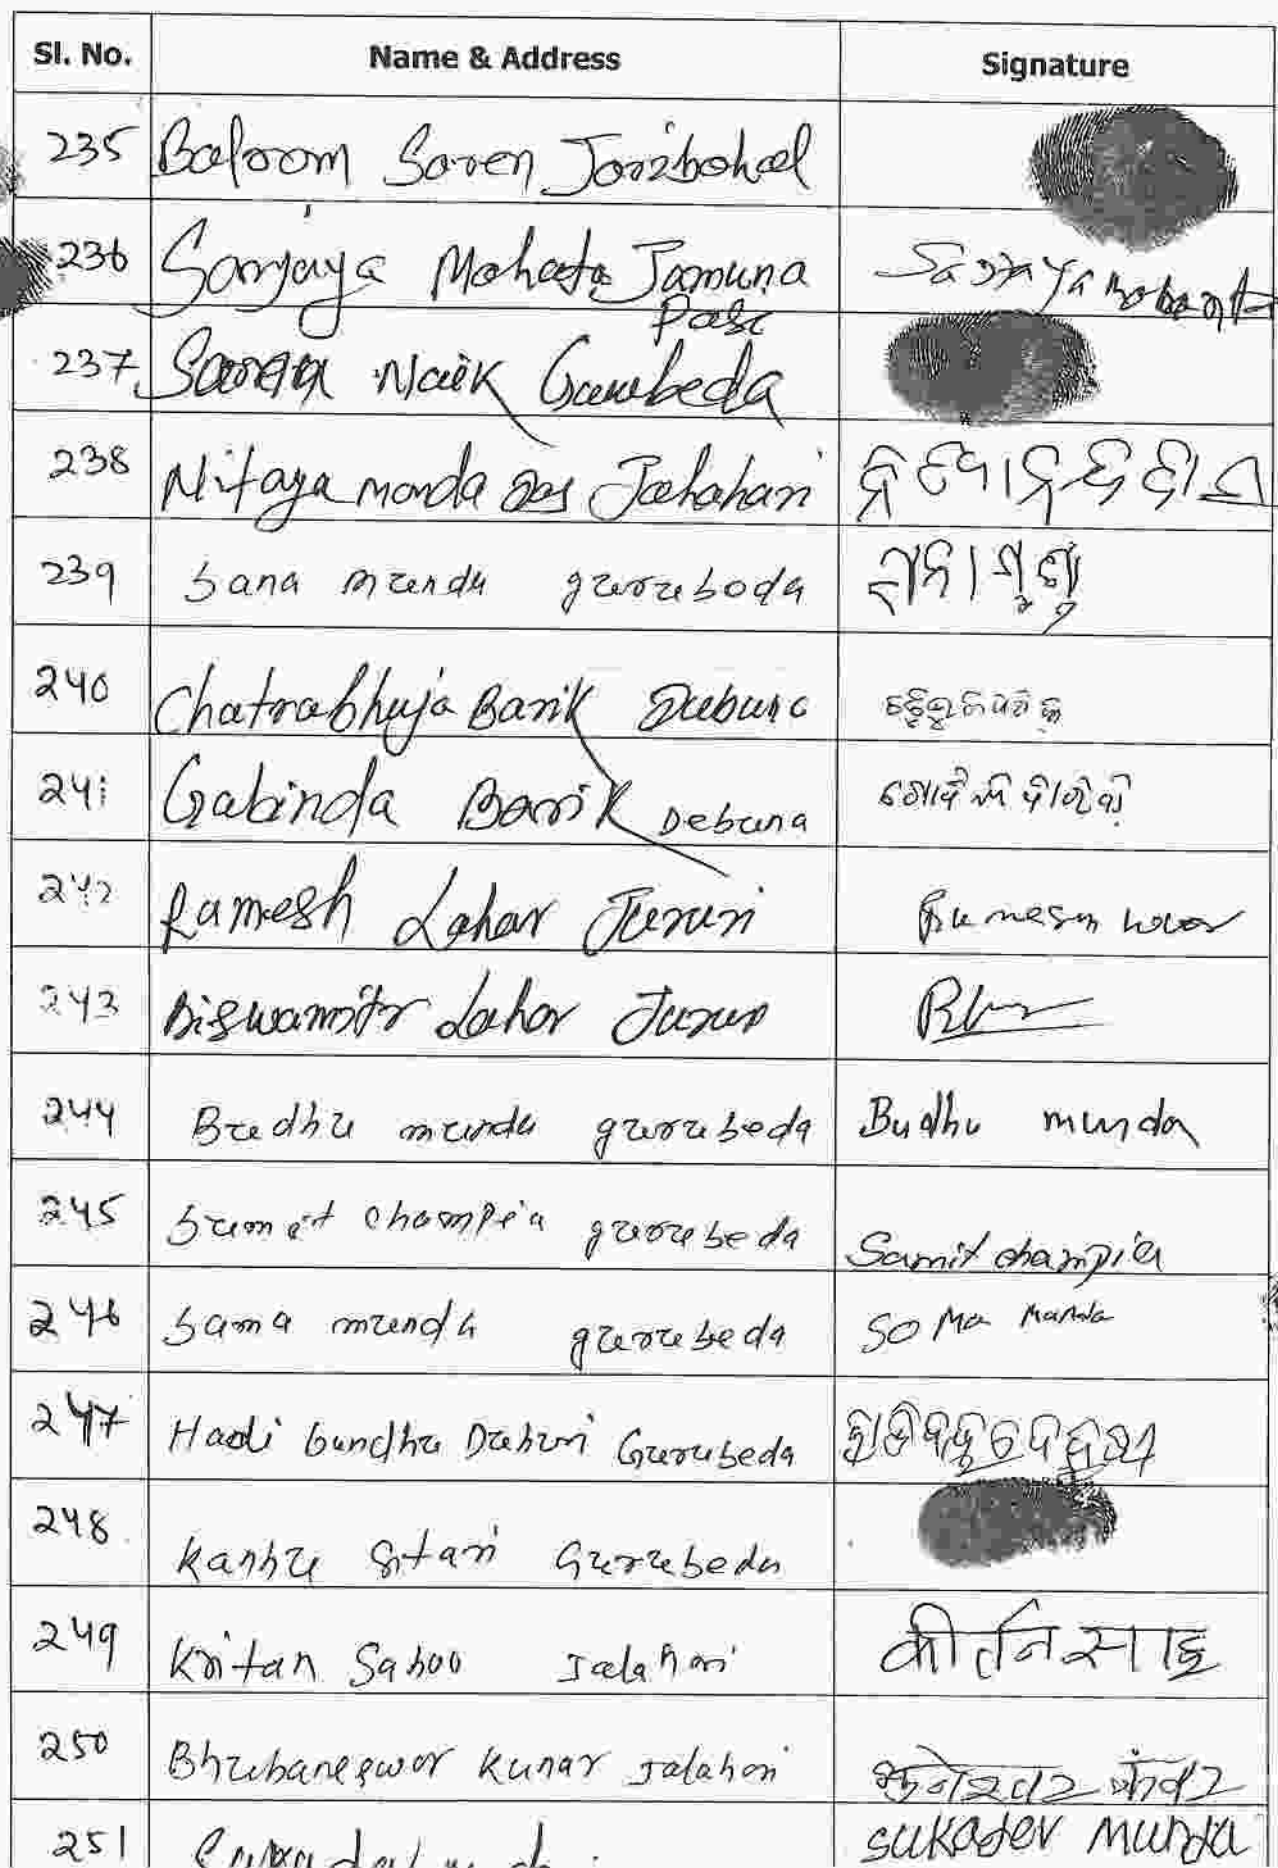 Sl. No. Name & Address Signature
235 Baloram Soren Joribahal
236 Sanjaya Mohata Jamuna Sanjaya Mohanta
Posi
237 Naik Gurubeda
238 Nityananda Das Jalahari ନିତ୍ୟାନନ୍ଦ ଦାସ
239 Sana munda gurubeda
240 Chatrabhuja Barik Dubuna
241 Gabinda Barik Debuna
242 Ramesh Lohar Jururi Ramesh
243 Biswamitr Lohar
244 Budhu munda gurubeda Budhu munda
245 Sumit Champia gurubeda Samit champia
246 Sama munda gurubeda SOMa Manda
247 Hadi bandhu Dehuri Gurubeda
248 Kanhu Gurubeda
249 Kritan Sahoo Jalahari कीर्तन साहु
250 Bhubaneswor Kunar Jalahari
251 Sukadev Munda